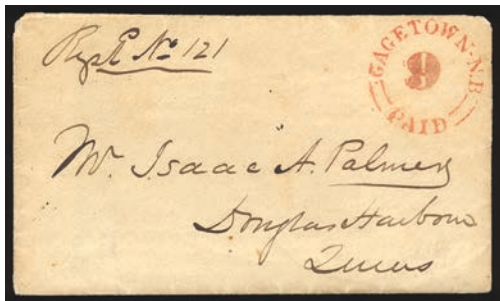 Regd No 121
GAGETOWN. N.B.
9
PAID
Mr. Isaac A. Palmer
Douglas Harbour
Queens